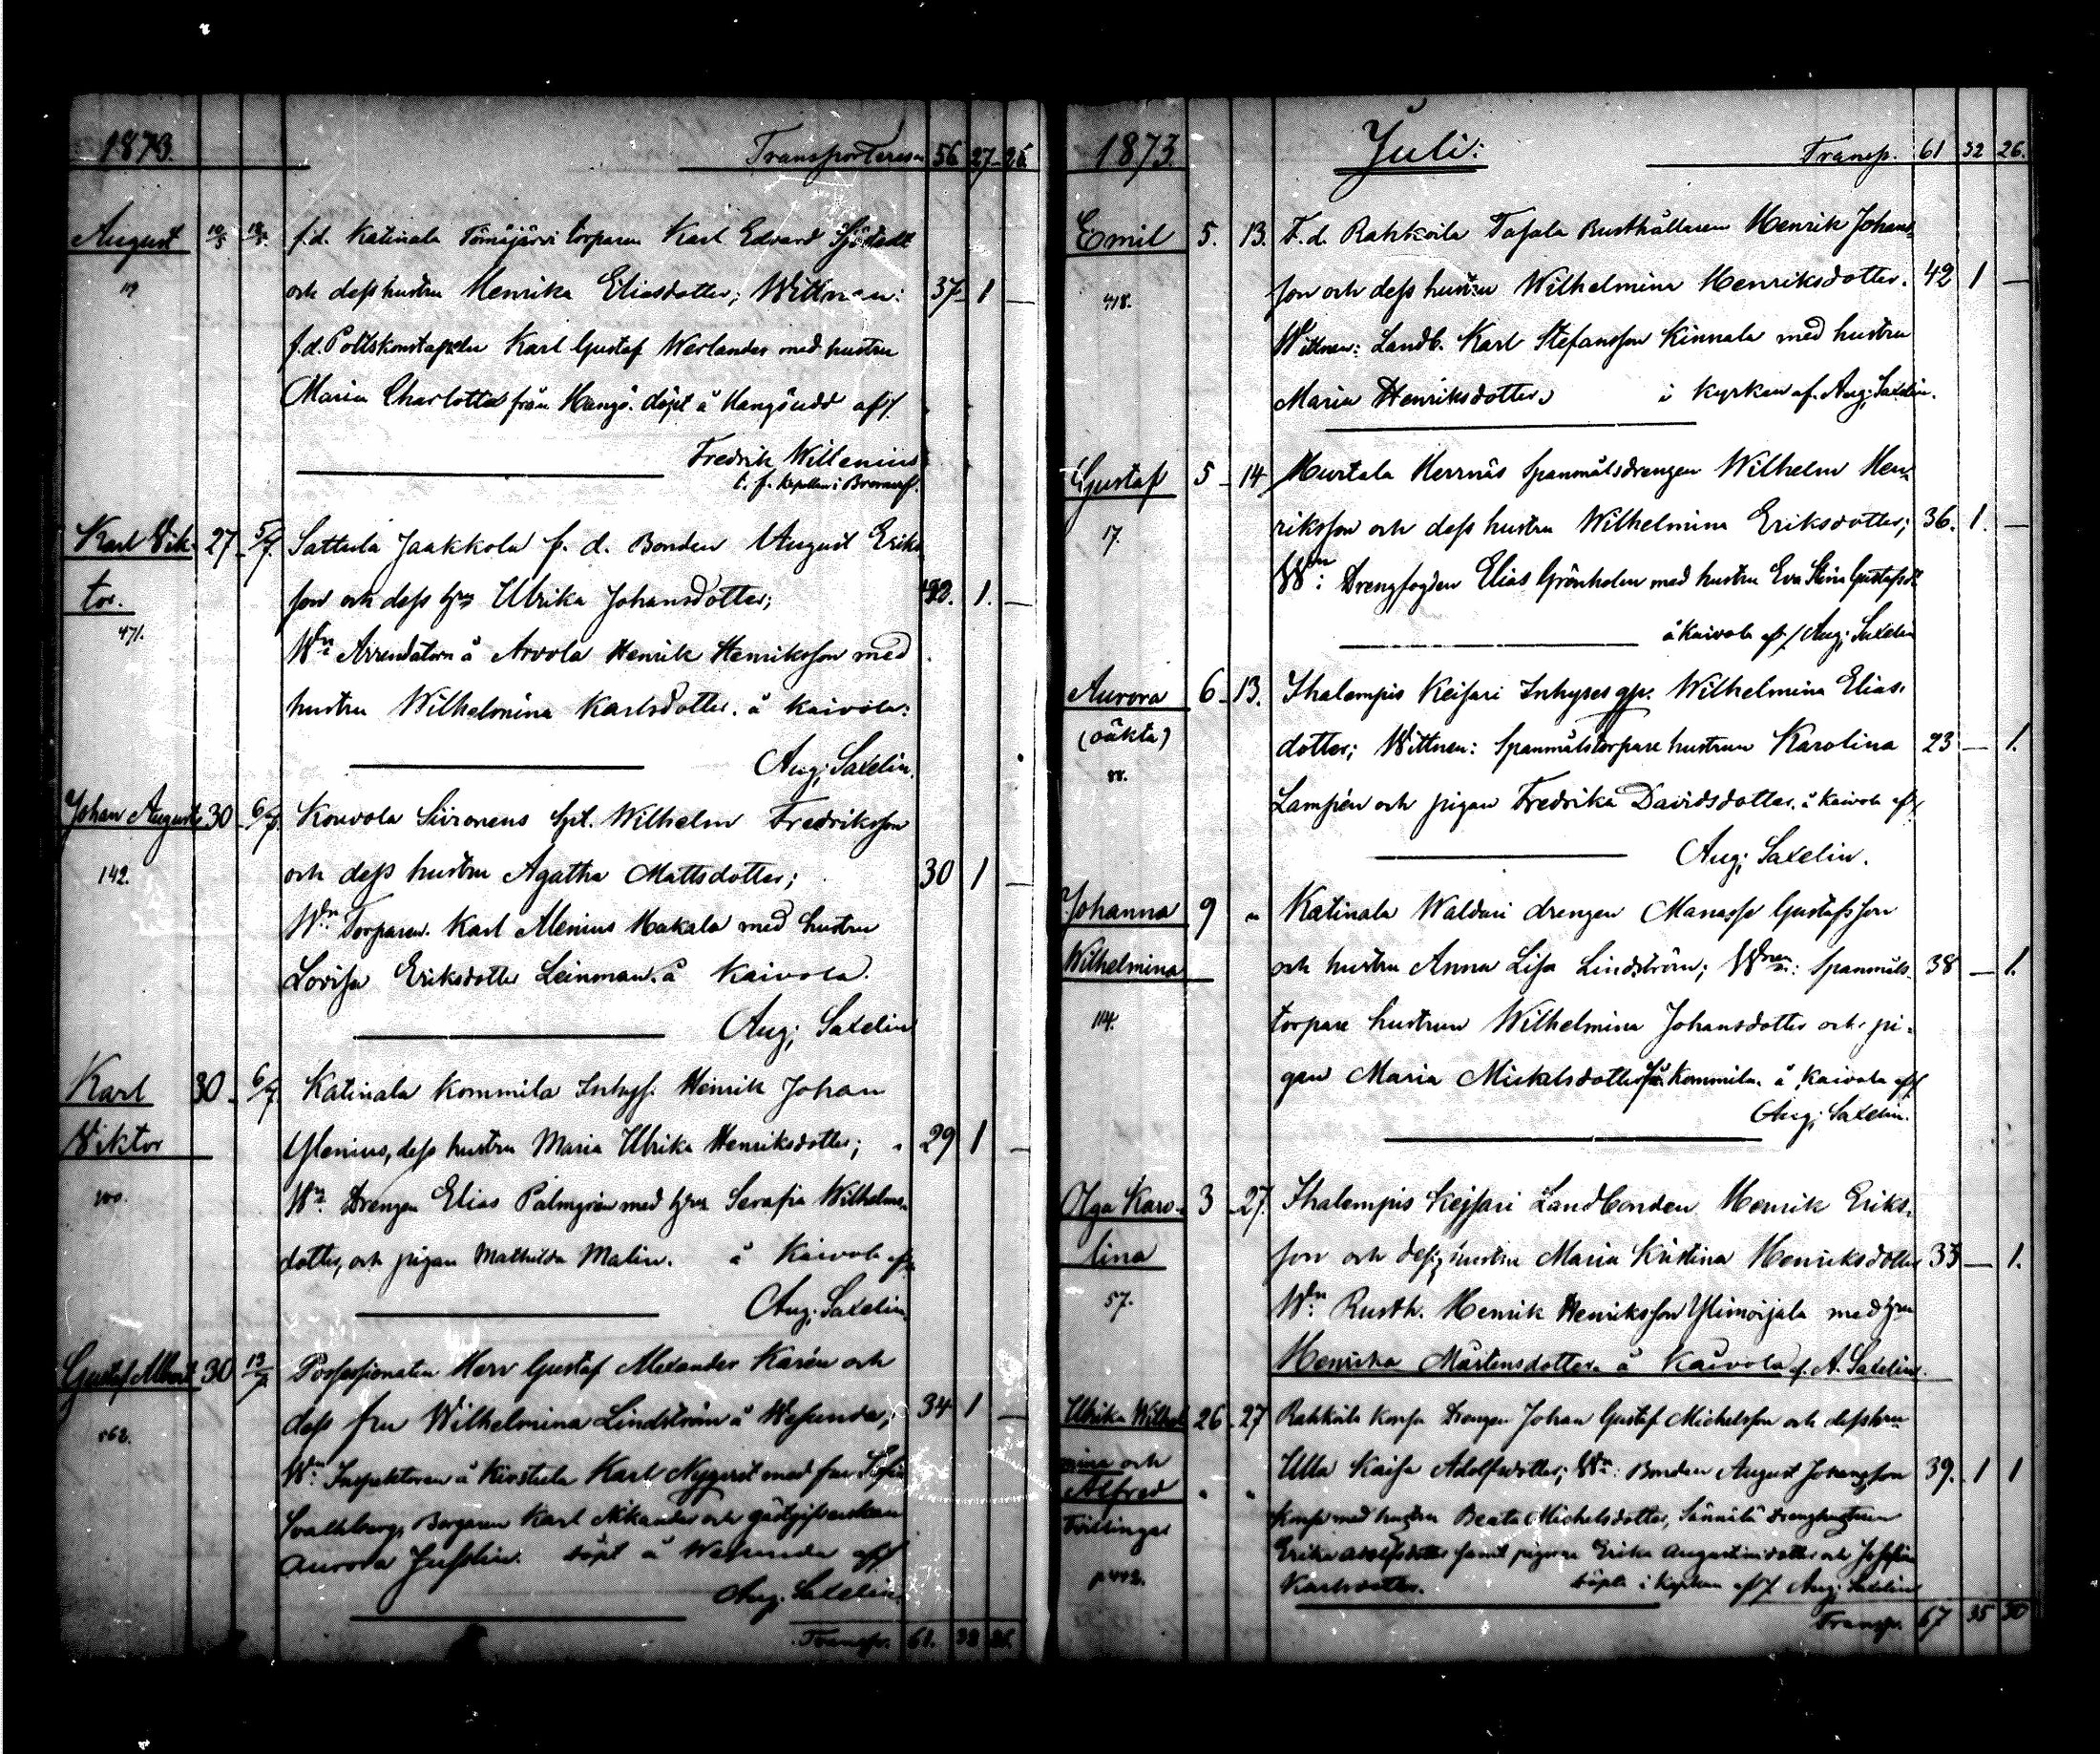 1873. Transporteras 56 27 26
August 10/5 18/5 f.d. Katinala torparen Karl Edvard Sjöstedt
och dess hustru Henrika Eliasdotter; Wittnen: 37 1 —
f.d. Karl Gustaf Werlander med hustru
Maria Charlotta från Hangö. döpt å Hangöudd af
Fredrik Willenius
Kapellan i Bromarf.
Karl Vik- 27 5/7 Sattula Jaakkola f. d. Bonden August Eriks
tor. son och dess hru Ulrika Johansdotter; 1. —
471. Wn Arrendatorn å Arvola Henrik Henriksson med
hustru Wilhelmina Karlsdotter. å Kaivola.
Aug; Saxelin.
Johan August 30 6/7 Kouvola Wilhelm Fredriksson
och dess hustru Agatha Mattsdotter; 30 1 —
142. Wn Torparen Karl Alenius Hakala med hustru
Lovisa Eriksdotter Leinman. å Kaivola.
Aug; Saxelin
Karl 30 6/7 Katinala Kommila Inhys. Henrik Johan
Viktor Ylenius, dess hustru Maria Ulrika Henriksdotter; 29 1 —
Wn Drengen Elias Palmgrén med hru Serafia Wilhelms-
dotter, och pigan Mathilda Malin. å Kaivola af
Aug; Saxelin
Gustaf Albert 30 13/7 Possessionaten Herr Gustaf Alexander Karén och
dess fru Wilhelmina Lindström å Wesunda; 34 1 —
Wn Inspektoren å Karl Nygrist med fru Sofia
Borgaren Karl Nikander och gästgifverskan
Aurora döpt å Wesunda af
Aug. Saxelin.
Transp. 61. 32 26.
1873. Juli: Transp. 61 32 26.
Emil 5. 13. F. d. Rahkoila Tapala Rusthållaren Henrik Johans-
418. son och dess hustru Wilhelmina Henriksdotter. 42 1 —
Wittnen: Landb. Karl Stefansson Kinnala med hustru
Maria Henriksdotter, i Kyrkan af. Aug; Saxelin.
Gustaf 5 — 14 Hurtala Herrnäs Spanmålsdrengen Wilhelm Hen-
17. riksson och dess hustru Wilhelmina Eriksdotter; 36. 1. —
Wn: Drengfogden Elias Grönholm med hustru Eva Stina Gustafsd.
å Kaivola af / Aug; Saxelin
Aurora 6 — 13. Ihalempis Keisari Inhyses qp. Wilhelmina Elias-
(oäkta) dotter; Wittnen: Spanmålstorpare hustrun Karolina 23 — 1.
88. Lampén och pigan Fredrika Davidsdotter. å Kaivola af
Aug; Saxelin.
Johanna 9 " Katinala Waldari drengen Manasse Gustafsson
Wilhelmina och hustru Anna Lisa Lindström; Wnen: Spanmåls- 38 — 1.
114. torpare hustrun Wilhelmina Johansdotter och pi-
gan Maria Mickelsdotter från Kommila. å Kaivola af
Aug; Saxelin.
Olga Karo- 3 27. Ihalempis Kejsari Landbonden Henrik Eriks-
lina son och dess hustru Maria Kristina Henriksdotter 33 — 1.
57. Wn: Rusth. Henrik Henriksson Ylimoijala med hru
Henrika Mårtensdotter. å Kaivola af. A. Saxelin.
Ulrika Wilhel- 26 — 27 Rahkoila Konsa Drengen Johan Gustaf Michelsson och dess hru
mina och Ulla Kaisa Adolfsdotter; Wn: Bonden August Johansson 39. 1 1
Alfred " " Konsa med hustru Beata Michelsdotter, Sännilä drenghustrun
Tvillingar Erika Adolfsdotter samt pigorna Erika Augustinsdotter och Josefina
Karlsdotter. döpte i Kyrkan af / Aug; Saxelin
Transp. 67 35 30